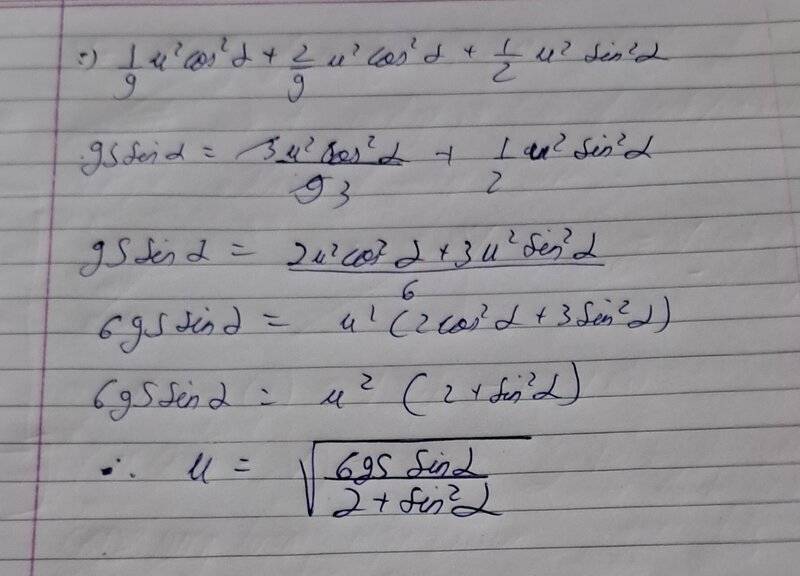 ∴) 1/9 u² cos² α + 2/9 u² cos² α + 1/2 u² sin² α
gs sin α = 3u² cos² α / 9 3 + 1/2 u² sin² α
gs sin α = 2u² cos² α + 3u² sin² α / 6
6gs sin α = u² (2cos² α + 3sin² α)
6gs sin α = u² (2 + sin² α)
∴ u = √(6gs sin α / 2 + sin² α)